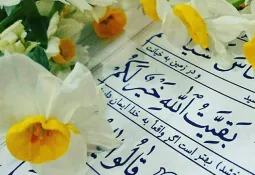 و در زمین به خیانت
بَقِیَّتُ اللهِ خَیْرٌ لَکُمْ
بهتر است اگر واقعاً به خدا ایمان
قالُوا